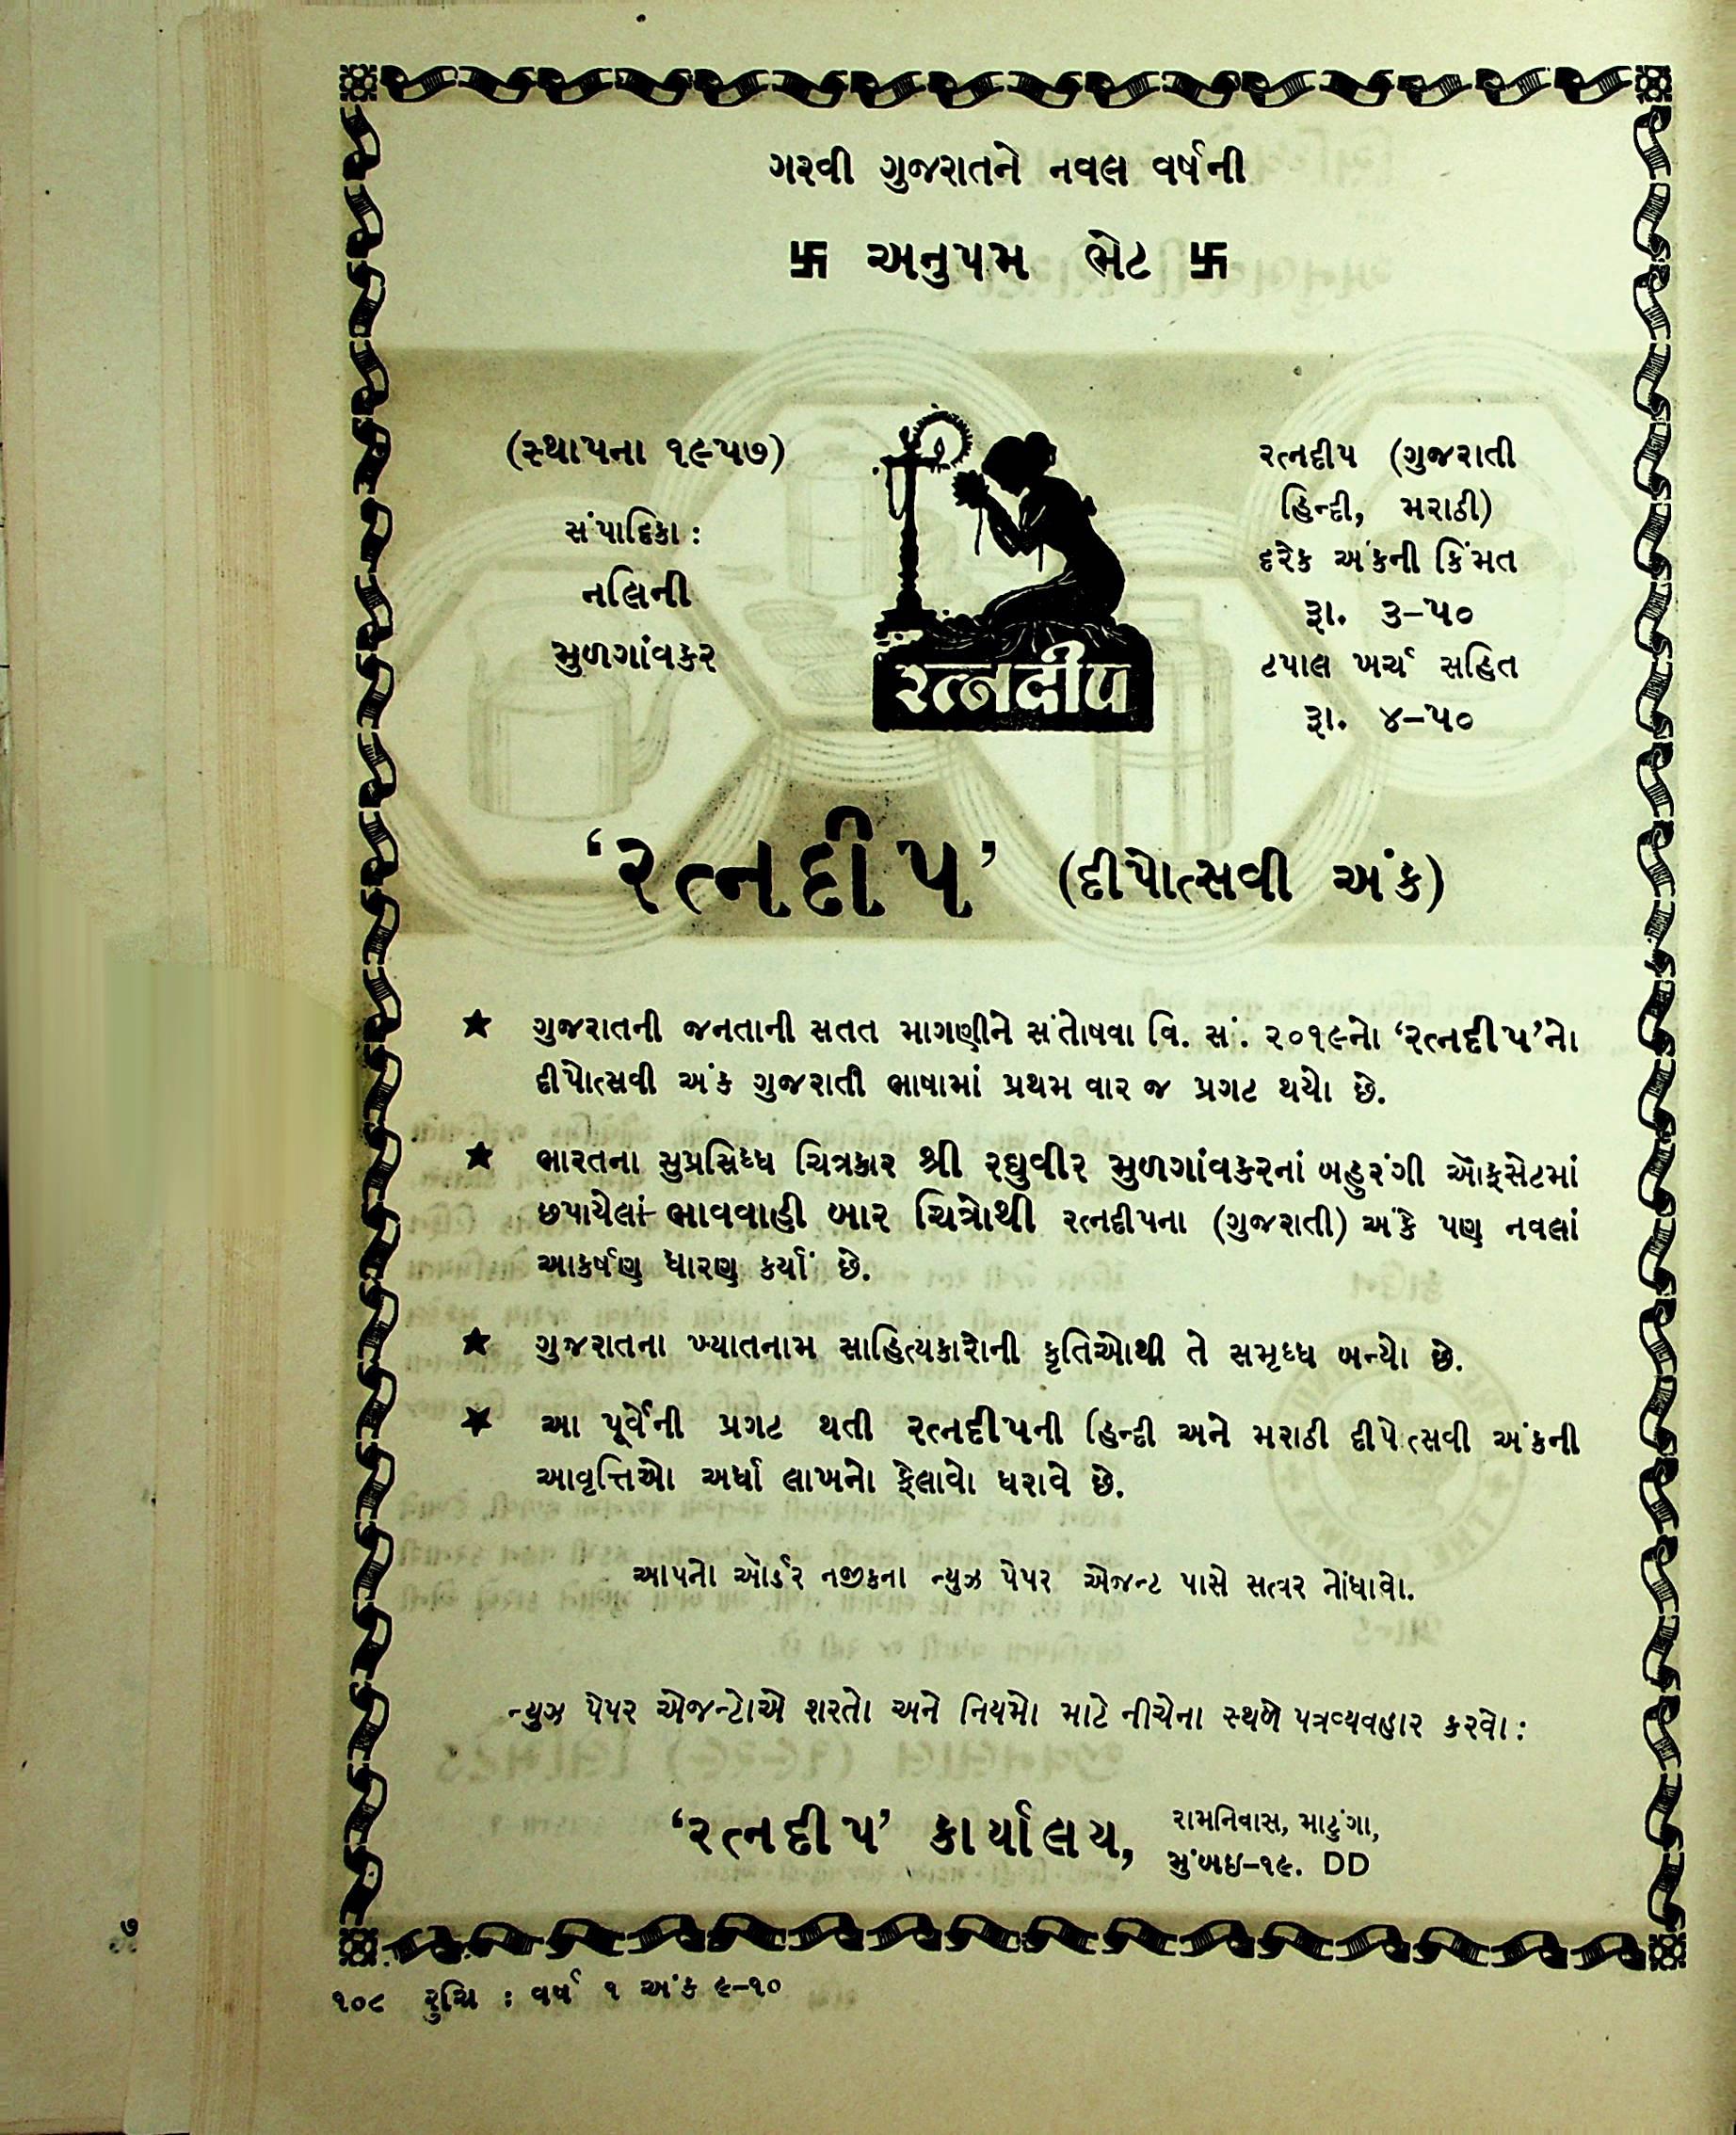 ગરવી ગુજરાતને નવલ વર્ષની
卐 અનુપમ ભેટ 卐
(સ્થાપના ૧૯૫૭)
સંપાદિકા :
નલિની
મુળગાંવકર
રત્નદીપ
રત્નદીપ (ગુજરાતી
હિન્દી, મરાઠી)
દરેક અંકની કિંમત
રૂા. ૩–૫૦
ટપાલ ખર્ચ સહિત
રૂા. ૪–૫૦
‘રત્નદીપ’ (દીપોત્સવી અંક)
★ ગુજરાતની જનતાની સતત માગણીને સંતોષવા વિ. સં. ૨૦૧૯નો ‘રત્નદીપ’નો
દીપોત્સવી અંક ગુજરાતી ભાષામાં પ્રથમ વાર જ પ્રગટ થયો છે.
★ ભારતના સુપ્રસિધ્ધ ચિત્રકાર શ્રી રઘુવીર મુળગાંવકરનાં બહુરંગી ઑફસેટમાં
છપાયેલાં ભાવવાહી બાર ચિત્રોથી રત્નદીપના (ગુજરાતી) અંકે પણ નવલાં
આકર્ષણ ધારણ કર્યાં છે.
★ ગુજરાતના ખ્યાતનામ સાહિત્યકારોની કૃતિઓથી તે સમૃધ્ધ બન્યો છે.
★ આ પૂર્વેની પ્રગટ થતી રત્નદીપની હિન્દી અને મરાઠી દીપોત્સવી અંકની
આવૃત્તિઓ અર્ધા લાખનો ફેલાવો ધરાવે છે.
આપનો ઑર્ડર નજીકના ન્યુઝ પેપર એજન્ટ પાસે સત્વર નોંધાવો.
ન્યુઝ પેપર એજન્ટોએ શરતો અને નિયમો માટે નીચેના સ્થળે પત્રવ્યવહાર કરવો :
‘રત્નદીપ’ કાર્યાલય, રામનિવાસ, માટુંગા,
મુંબઇ–૧૯. DD
૧૦૮ રુચિ : વર્ષ ૧ અંક ૯–૧૦
૭